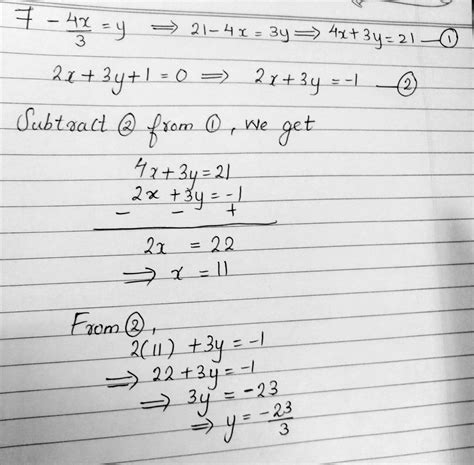 7 - 4x/3 = y ⟹ 21 - 4x = 3y ⟹ 4x + 3y = 21 - ①
2x + 3y + 1 = 0 ⟹ 2x + 3y = -1 - ②
Subtract ② from ①, we get
4x + 3y = 21
2x + 3y = -1
- - +
2x = 22
⟹ x = 11
From ②,
2(11) + 3y = -1
⟹ 22 + 3y = -1
⟹ 3y = -23
⟹ y = -23/3